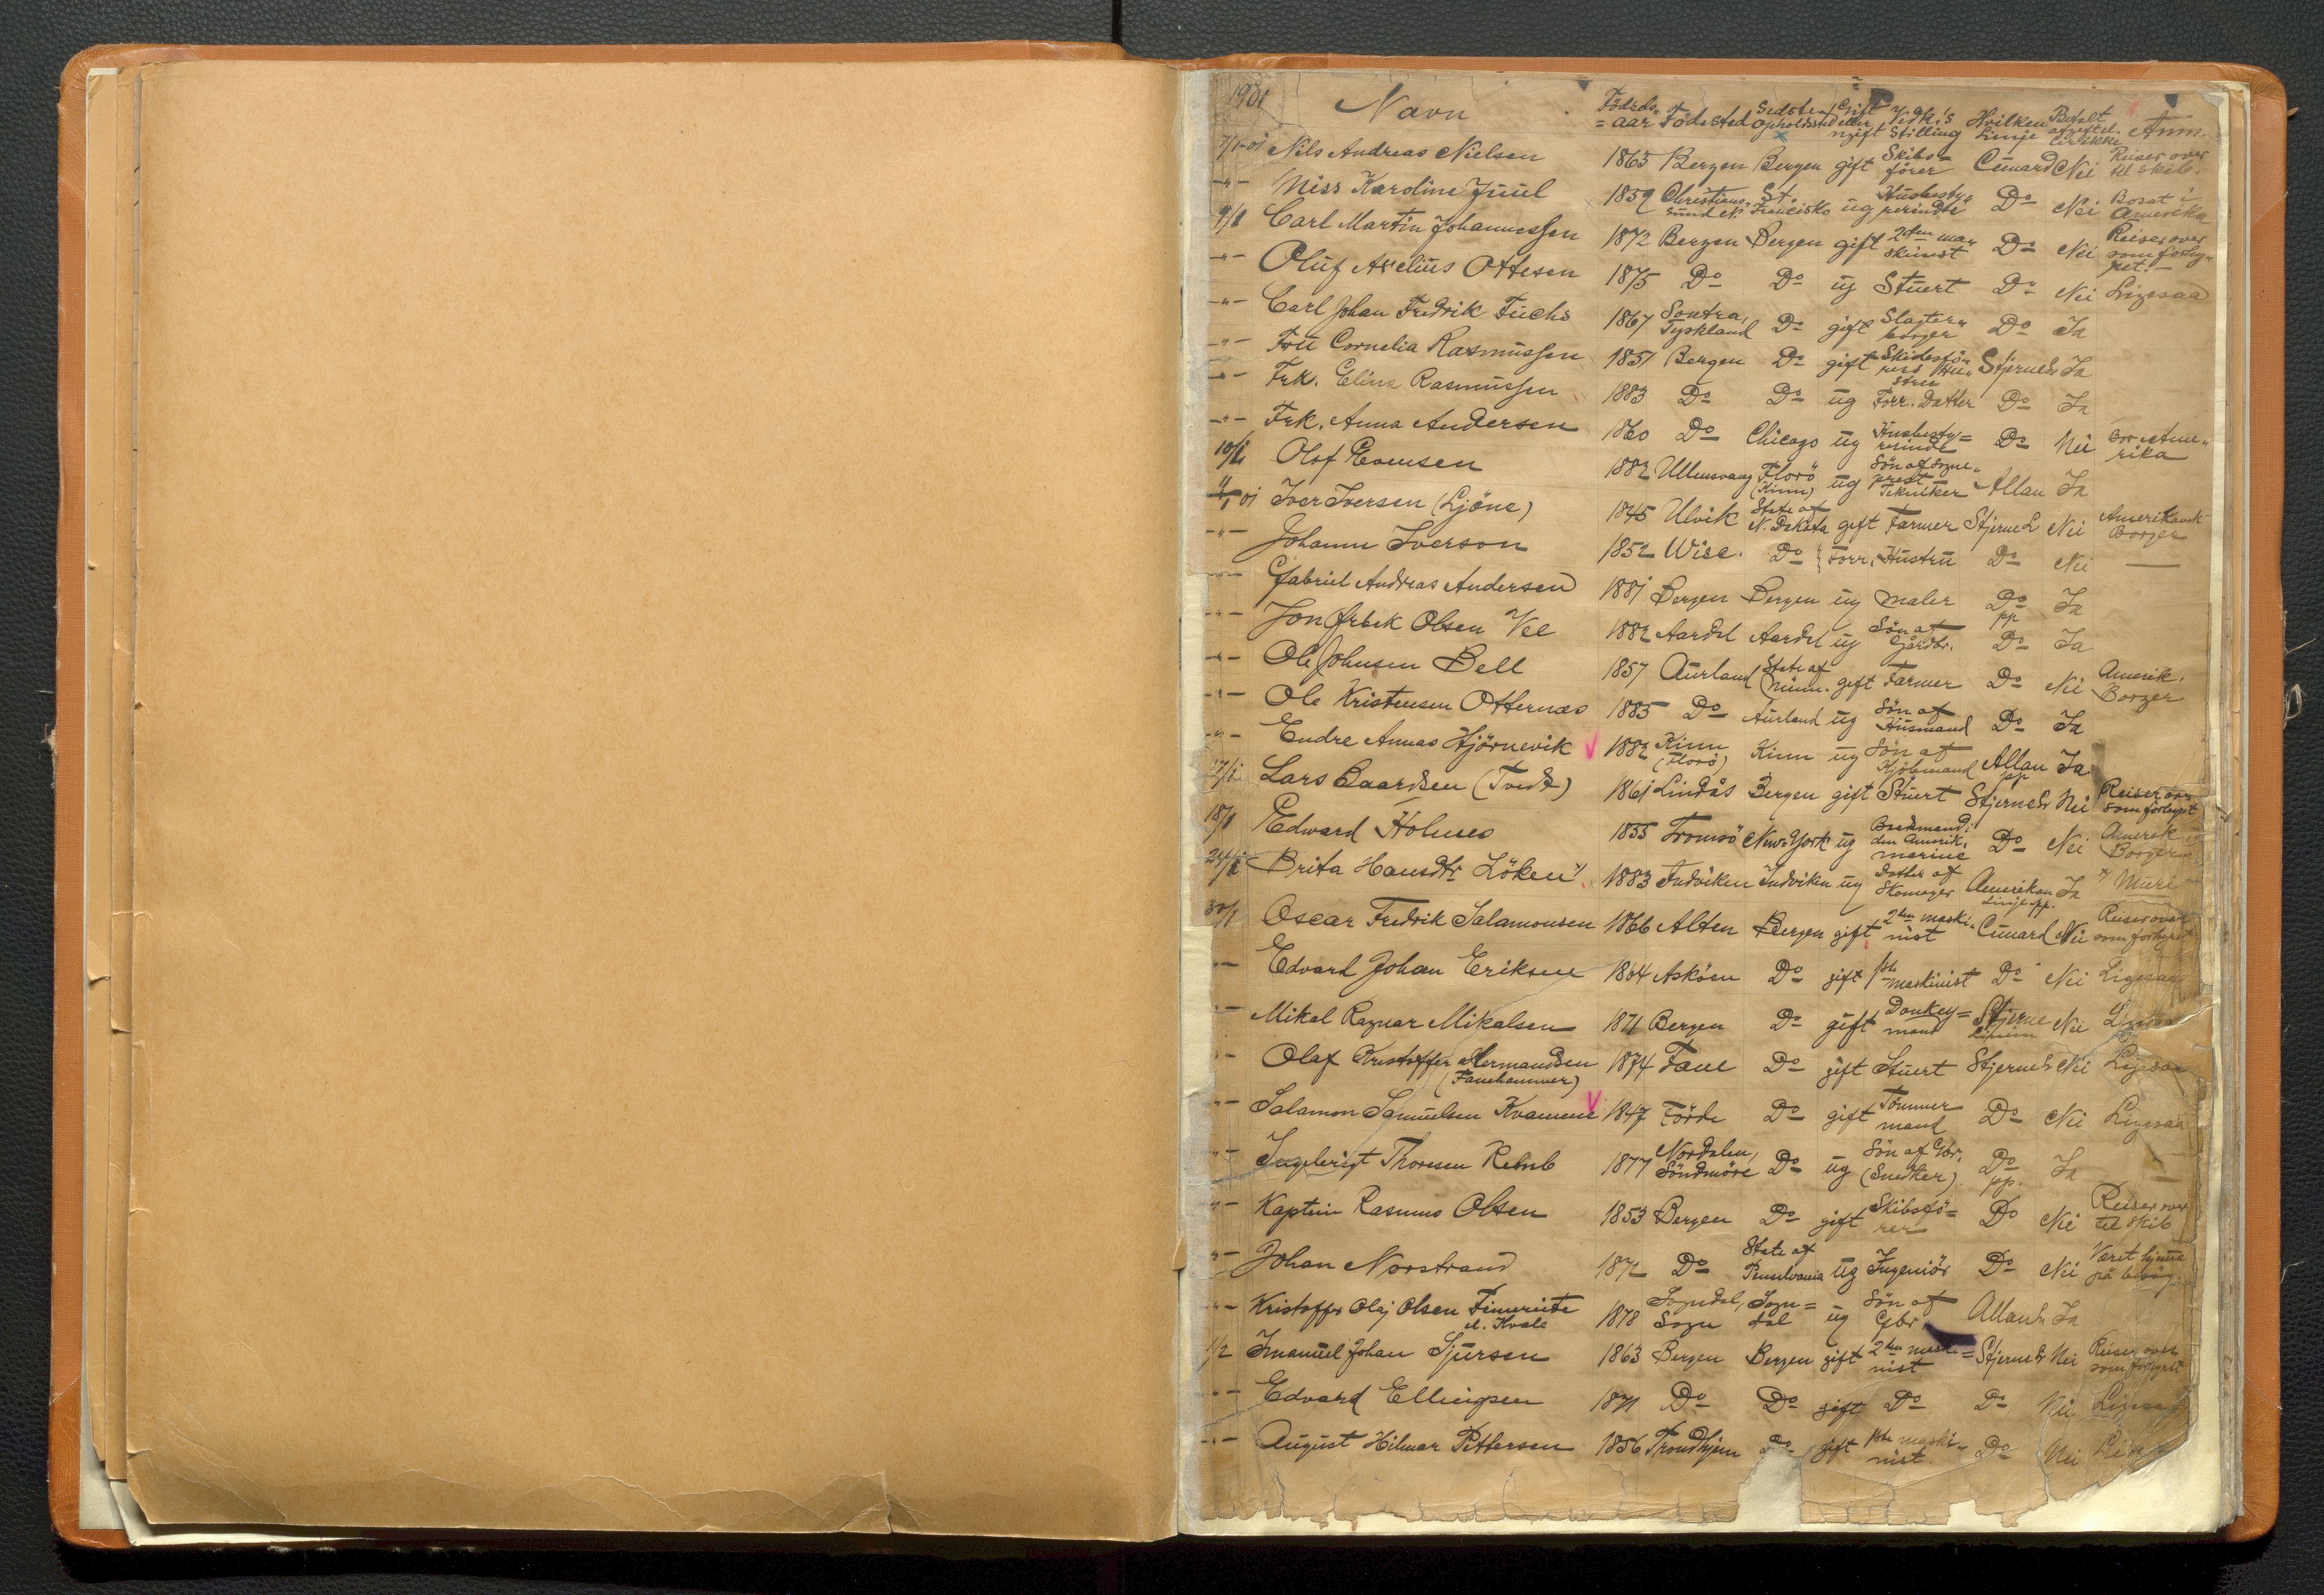 1901 Navn Födsels-aar Födested Sidste Opholdssted Gift eller ugift Vedk's Stilling Hvilken Linje Betalt afgiftel. el. ikke Anm.
7/1-01 Nils Andreas Nielsen 1865 Bergen Bergen gift Skibs=förer Cunard Nei Reiser over til Skib.
-"- Miss Karoline Juul 1859 Christiansund N St. Francisko ug Husbesty=rerinde Do Nei Bosat i Amerika
9/1 Carl Martin Johannessen 1872 Bergen Bergen gift 2den maskinist Do Nei Reiser over som forhyret.
-"- Oluf Aselius Ottesen 1875 Do Do ug Stuert Do Nei Ligesaa
-"- Carl Johan Fredrik Fuchs 1867 Sontra, Tyskland Do gift Slagterborger Do Ja
-"- Fru Cornelia Rasmussen 1851 Bergen Do gift Skibsförers Hustru StjerneL Ja
-"- Frk. Elina Rasmussen 1883 Do Do ug Forr. Datter Do Ja
-"- Frk. Anna Andersen 1860 Do Chicago ug Husbesty=rerinde Do Nei Bor i Amerika
10/1 Olof Evensen 1882 Ullensvang Florö (Kinn) ug Sön af Sogneprest - Tekniker Allan Ja
11/1 01 Iver Iversen (Ljöne) 1845 Ulvik State of N. Dakota gift Farmer Stjerne L Nei Amerikansk Borger
-"- Johann Iverson 1852 Wisc. Do Forr. Hustru Do Nei —
-"- Gabriel Andreas Andersen 1881 Bergen Bergen ug Maler Do pp Ja
-"- Jon Ørbek Olsen Vee 1882 Aardal Aardal ug Sön af Gårdbr. Do Ja
-"- Ole Johnsen Bell 1857 Aurland State of Minn. gift Farmer Do Nei Amerik. Borger
-"- Ole Kristensen Otternæs 1885 Do Aurland ug Sön af Husmand Do Ja
-"- Endre Annas Hjörnevik V 1882 Kinn (Florö) Kinn ug Sön af Kjöbmand Allan pp Ja
17/1 Lars Baardsen (Tvedt) 1861 Lindås Bergen gift Stuert StjerneL Nei Reiser over som forhyret
18/1 Edward Holmes 1855 Tromsö New-York ug Baadmand i den Amerik. marine Do Nei Amerik Borger
24/1 Brita Hansdtr Löken x) 1883 Indviken Indviken ug Datter af Skomager Amerikan Linje pp. Ja x) Muri
30/1 Oscar Fredrik Salamonsen 1866 Alten Bergen gift 2den maskinist Cunard Nei Reiser over som forhyret
-"- Edvard Johan Eriksen 1864 Asköen Do gift 1ste Maskinist Do Nei Ligesaa
-"- Mikal Ragnar Mikalsen 1871 Bergen Do gift Donkey=mand Stjerne Linien Nei
-"- Olaf Kristoffer Hermandsen (Fanehammer) 1874 Fane Do gift Stuert StjerneL Nei Ligesaa
-"- Salamon Samuelsen Kvamme V 1847 Förde Do gift Tömmermand Do Nei Ligesaa
-"- Ingebrigt Thoresen Relnb 1877 Nordalen, Söndmöre Do ug Sön af Gbr. (Snedker) Do pp. Ja
-"- Kaptein Rasmus Olsen 1853 Bergen Do gift Skibsfö=rer Do Nei Reiser over til Skib
-"- Johan Norstrand 1872 Do State of Pensilvania ug Ingeniör Do Nei Været hjemme på besög
-"- Kristoffer Olaj Olsen Fimreite el. Kvale 1878 Sogndal, Sogn Sogn=dal ug Sön af Gbr AllanL Ja
1/2 Imanuel Johan Sjursen 1863 Bergen Bergen gift 2den maski=nist StjerneL Nei Reiser over som forhyret
-"- Edvard Ellingsen 1871 Do Do gift Do Do Nei Ligesaa
-"- August Hilmar Pettersen 1856 Trondhjem Do gift 1ste maskinist. Do Nei